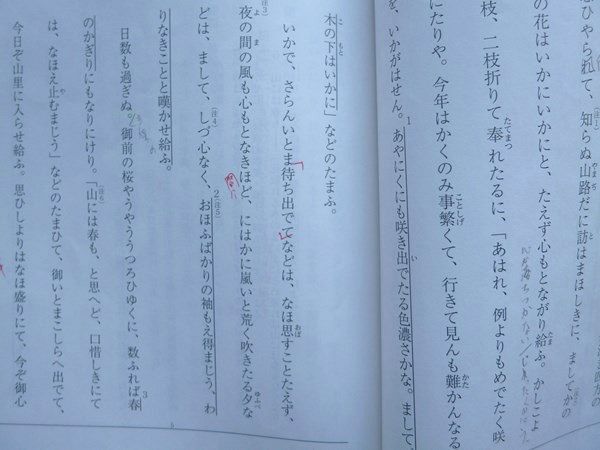 思ひやられて、知らぬ山路だに訪はまほしきに、ましてかの
の花はいかにいかにと、たえず心もとながり給ふ。かしこよ
枝、二枝折りて奉れたるに、「あはれ、例よりもめでたく咲
にたりや。今年はかくのみ事繁くて、行きて見んも難かんなる
を、いかがはせん。あやにくにも咲き出でたる色濃さかな。まして、
木の下はいかに」などのたまふ。
いかで、さらんいとま待ち出でてなどは、なほ思すことたえず、
夜の間の風も心もとなきほど、にはかに嵐いと荒く吹きたる夕な
どは、まして、しづ心なく、おほふばかりの袖もえ得まじう、わ
りなきことと嘆かせ給ふ。
日数も過ぎぬ。御前の桜やうやううつろひゆくに、数ふれば春
のかぎりにもなりにけり。「山には春も、と思へど、口惜しきにて
は、なほえ止むまじう」などのたまひて、御いとまこしらへ出でて、
今日ぞ山里に入らせ給ふ。思ひしよりはなほ盛りにて、今ぞ御心
5